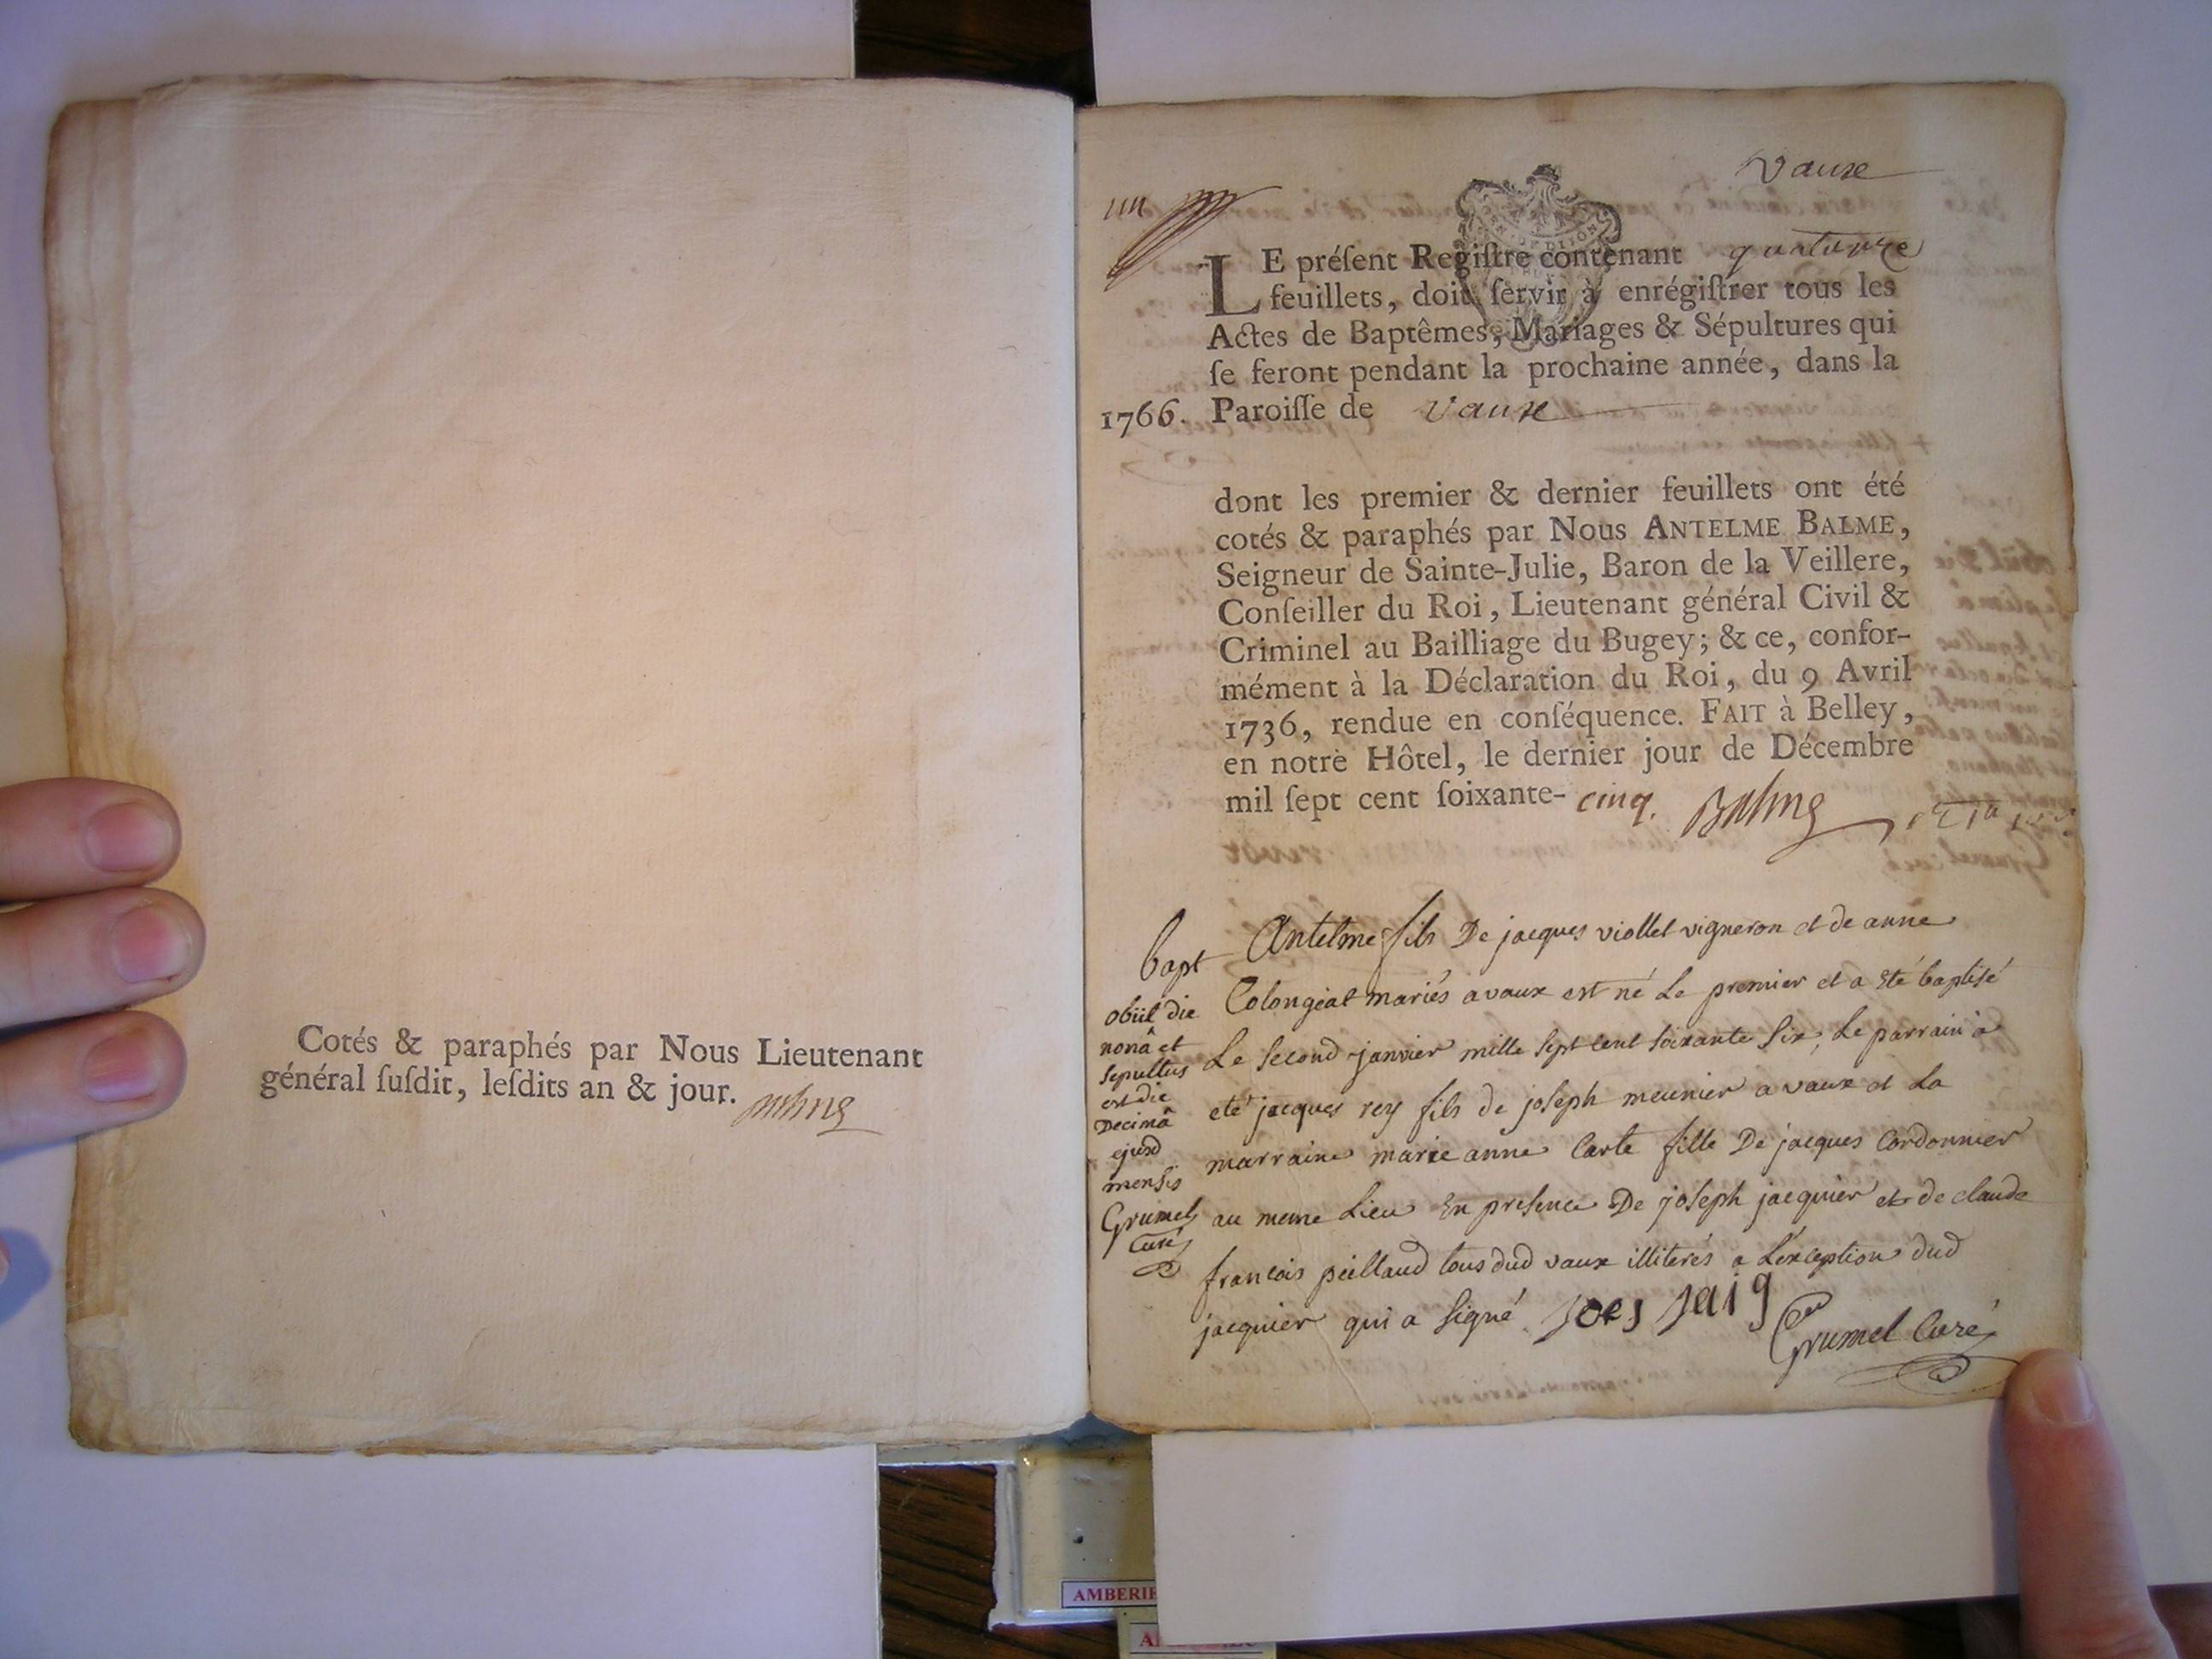 Cotés & paraphés par Nous Lieutenant
général ſuſdit, leſdits an & jour.
Vaux
LE préſent Regiſtre contenant quatorze
feuillets, doit ſervir à enrégiſtrer tous les
Actes de Baptêmes, Mariages & Sépultures qui
ſe feront pendant la prochaine année, dans la
1766. Paroiſſe de Vaux
dont les premier & dernier feuillets ont été
cotés & paraphés par Nous ANTELME BALME,
Seigneur de Sainte-Julie, Baron de la Veillere,
Conſeiller du Roi, Lieutenant général Civil &
Criminel au Bailliage du Bugey; & ce, confor-
mément à la Déclaration du Roi, du 9 Avril
1736, rendue en conſéquence. FAIT à Belley,
en notre Hôtel, le dernier jour de Décembre
mil ſept cent ſoixante-cinq. Balme
bapt
obiit die
nonâ et
sepultus
est die
Decimâ
ejusd
mensis
Grumel
Curé
Antelme fils De jacques viollet vigneron et de anne
Colongeat mariés a vaux est né Le premier et a Eté baptisé
Le second janvier mille sept cent soixante six, Le parrain a
eté jacques rey fils de joseph meunier a vaux et La
marraine marie anne Carte fille De jacques Cordonnier
au meme Lieu En presence De joseph jacquier et de claude
francois peillaud tous dud vaux illiterés a L'exception dud
jacquier qui a signé.
Grumel Curé